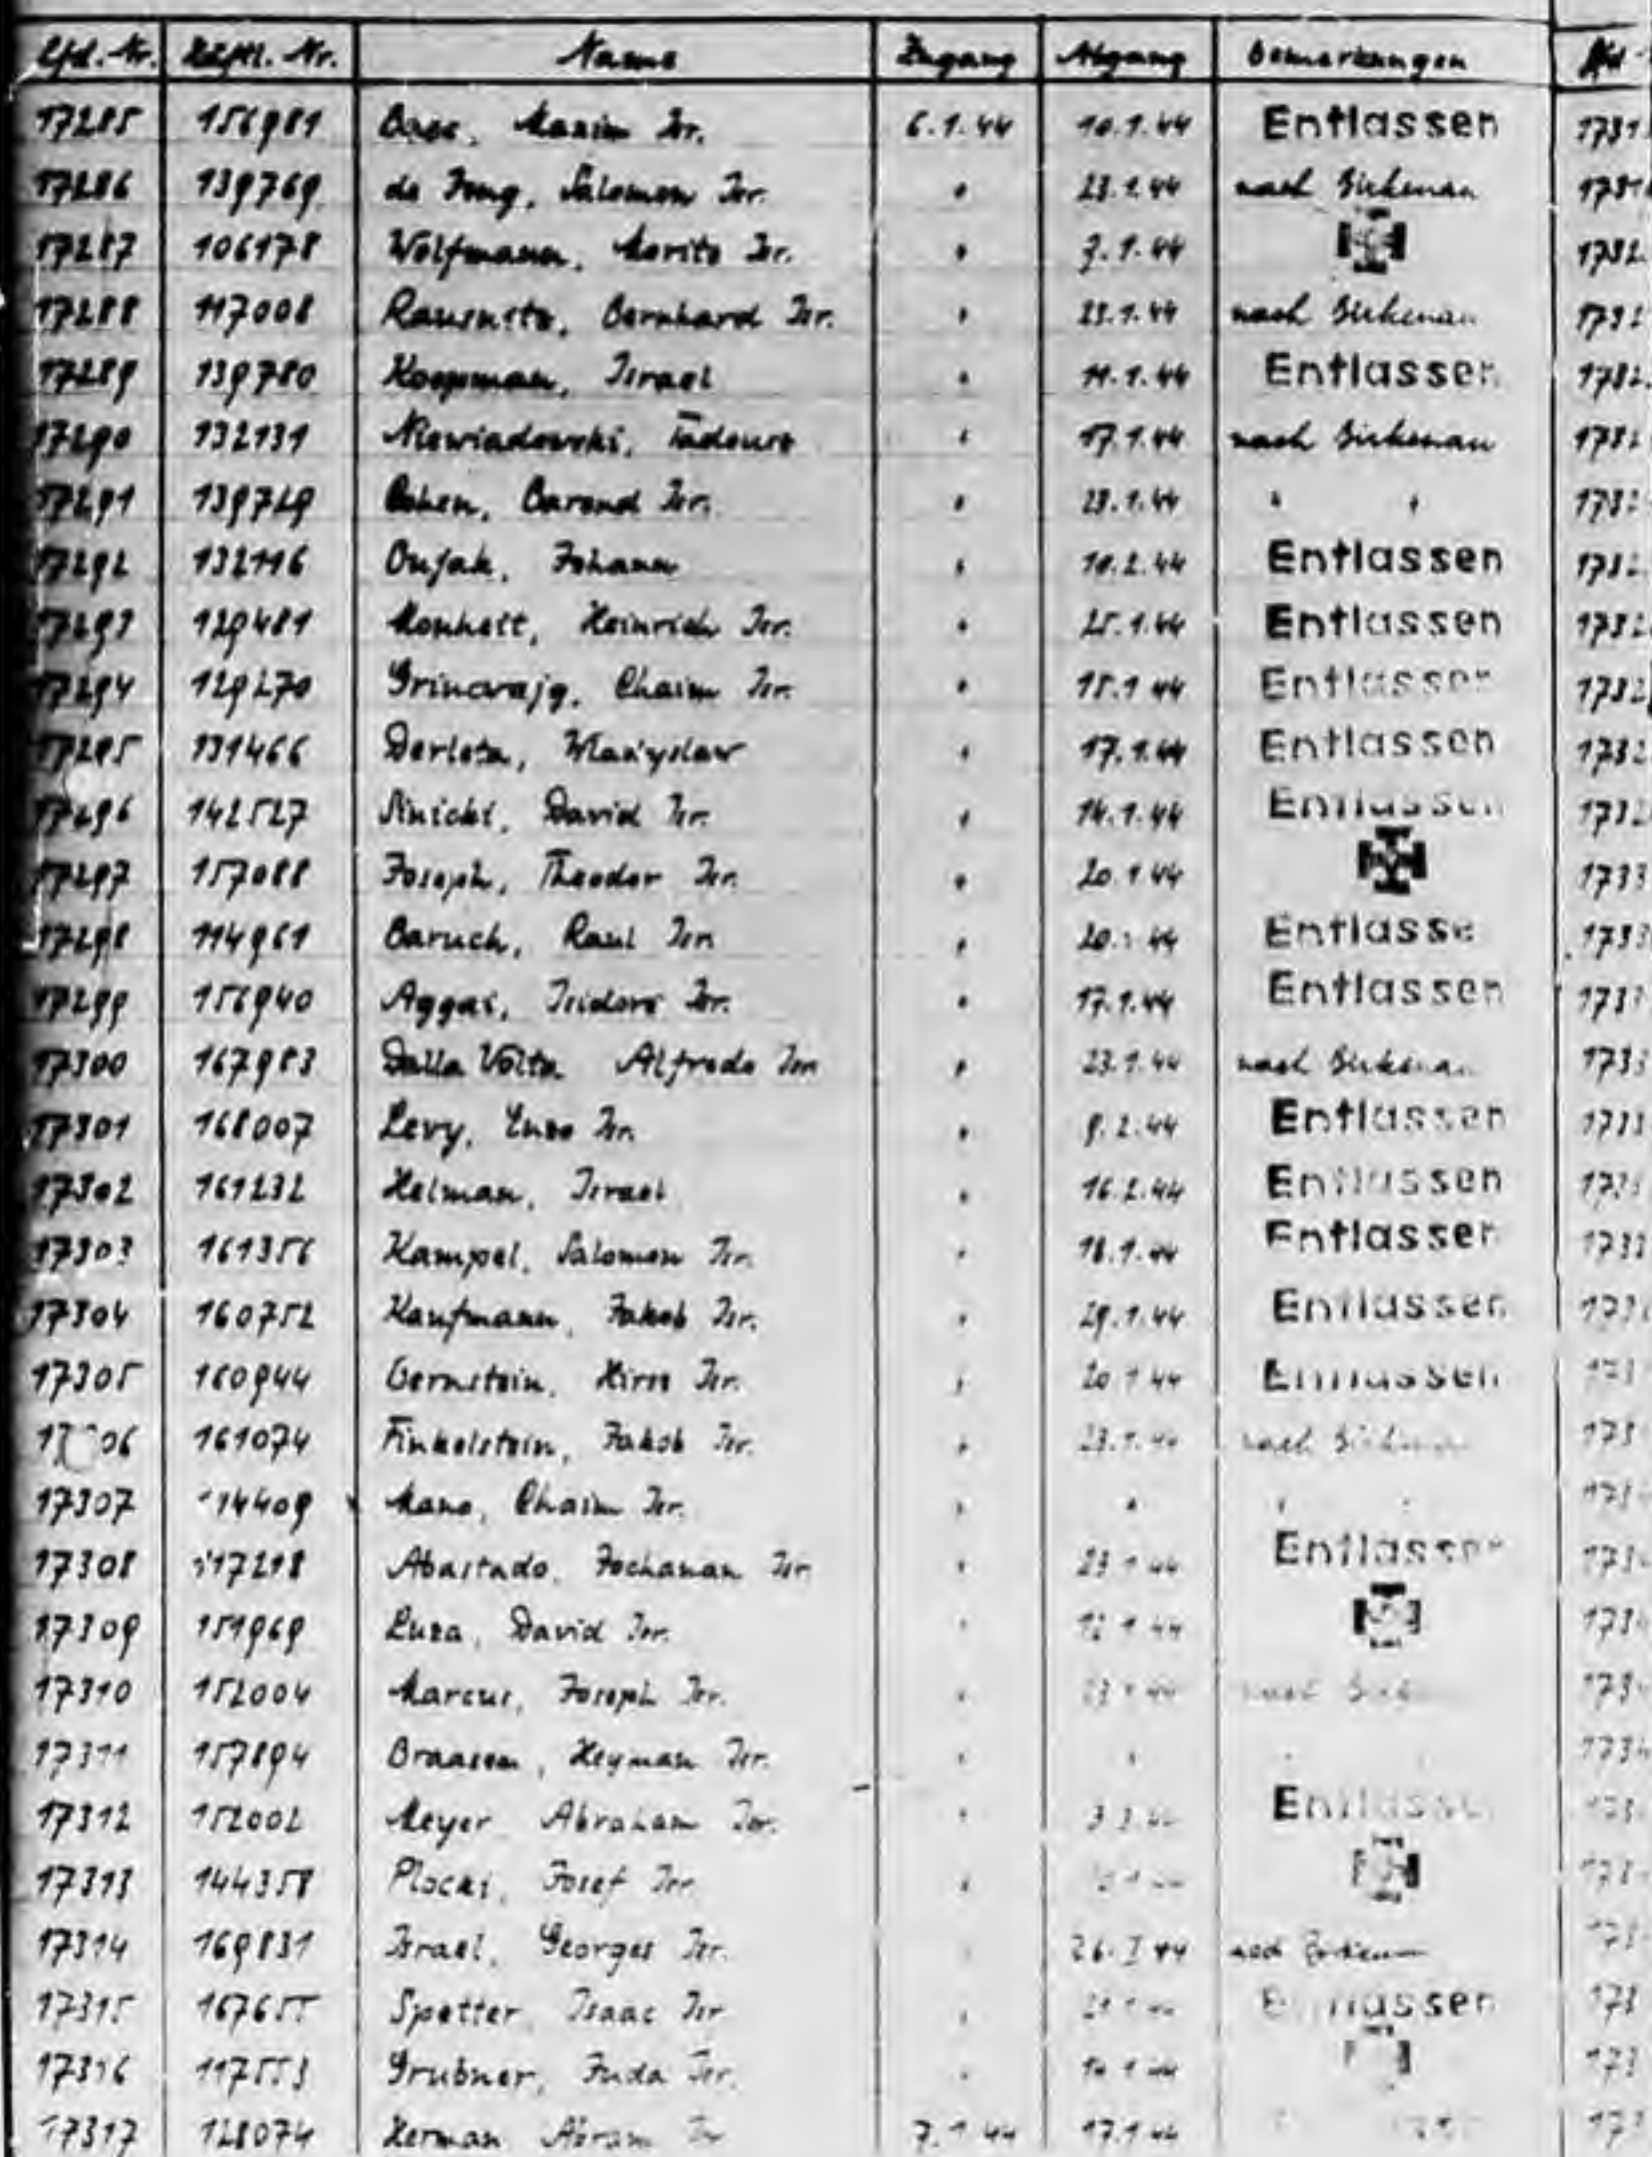 Lfd. Nr. Häftl. Nr. Name Zugang Abgang Bemerkungen Lfd.
17285 156981 Maxim Isr. 6.1.44 10.1.44 Entlassen 1731
17286 139769 de Jong, Salomon Isr. " 23.1.44 nach Birkenau 1731
17287 106178 Wolfmann, Moritz Isr. " 7.1.44 1732
17288 117008 Rausnitz, Bernhard Isr. " 23.1.44 nach Birkenau 1732
17289 139780 Koopman, Israel " 11.1.44 Entlassen 1732
17290 132131 Niewiadowski, Tadeusz " 17.1.44 nach Birkenau 1732
17291 139729 Cohen, Barend Isr. " 23.1.44 " " 1732
17292 132116 Johann " 10.2.44 Entlassen 1732
17293 129481 Monheit, Heinrich Isr. " 25.1.44 Entlassen 1732
17294 129270 Chaim Isr. " 15.1.44 Entlassen 1732
17295 131466 Derleta, Wladyslaw " 17.1.44 Entlassen 1732
17296 142527 Sinicki, David Isr. " 14.1.44 Entlassen 1732
17297 157088 Joseph, Theodor Isr. " 20.1.44 1733
17298 114961 Baruch, Raul Isr. " 20.1.44 Entlasse 1733
17299 156940 Aggai, Isidore Isr. " 17.1.44 Entlassen 1733
17300 167983 Dalla Volta Alfredo Isr. " 23.1.44 nach Birkenau 1733
17301 168007 Levy, Enzo Isr. " 9.2.44 Entlassen 1733
17302 161232 Helman, Israel " 16.2.44 Entlassen 173
17303 161356 Kampel, Salomon Isr. " 18.1.44 Entlassen 1733
17304 160752 Kaufmann, Jakob Isr. " 29.1.44 Entlassen 173
17305 160944 Bernstein, Hirsz Isr. " 20.1.44 Entlassen 173
17 06 161074 Finkelstein, Jakob Isr. " 23.1.44 nach Birkenau 173
17307 14409 Mano, Chaim Isr. " " " " 173
17308 117218 Abastado, Jochanan Isr. " 23.1.44 Entlassen 173
17309 151969 Luza, David Isr. " 12.1.44 173
17310 152004 Marcus, Joseph Isr. " 23.1.44 nach 173
17311 157894 Braasem, Heyman Isr. " " " 1734
17312 152002 Meyer Abraham Isr. " Entlasse 173
17313 144358 Plocki, Josef Isr. " 173
17314 169831 Israel, Georges Isr. " 26.I.44 nach Birkenau 173
17315 167655 Spetter Isaac Isr. " 21.1.44 Entlassen 173
17316 117553 Grubner, Juda Isr. " 173
17317 128074 Herman Abram Isr. 7.1.44 17.1.44 173